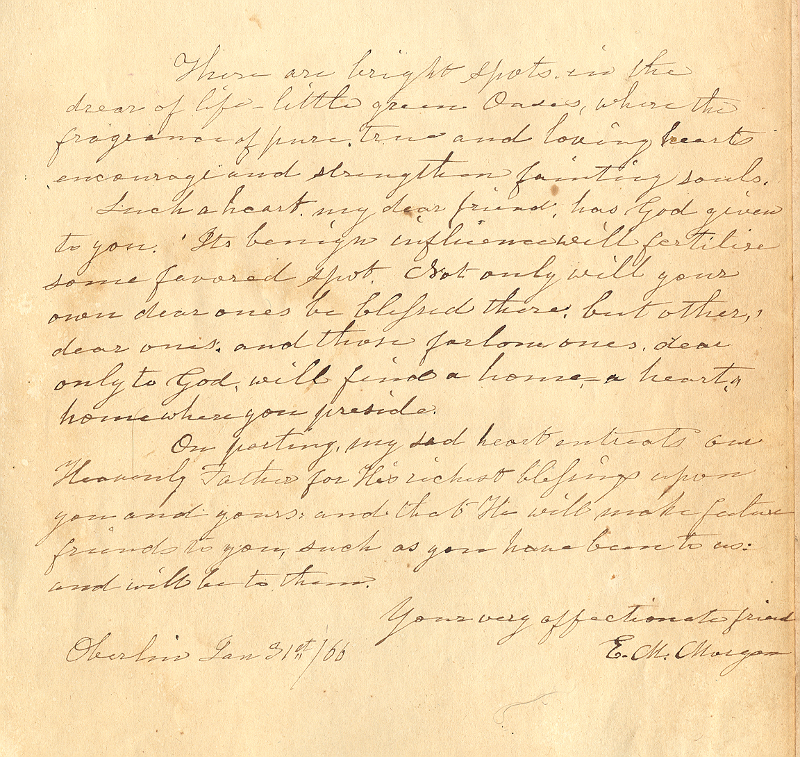 There are bright spots in the
drear of life - little green Oases, where the
fragrance of pure, true and loving hearts
encourage and strengthen fainting souls.
Such a heart, my dear friend, has God given
to you. Its benign influence will fertilize
some favored spot. Not only will your
own dear ones be blessed there, but other,
dear ones, and those forlorn ones, dear
only to God, will find a home, a heart,
home where you preside.
On parting, my sad heart entreats our
Heavenly Father for His richest blessings upon
you and yours, and that He will make future
friends to you, such as you have been to us:
and will be to them.
Your very affectionate friend
E. M. Morgan
Oberlin Jan 31st /66